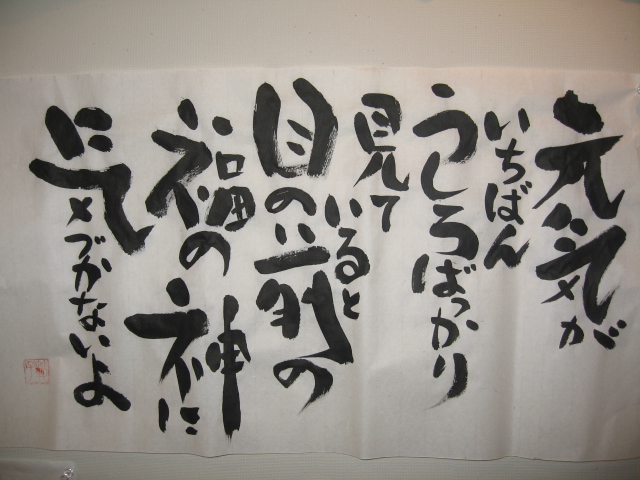 元気が
いちばん
うしろばっかり
見て
いると
目の前の
福の
神に
気づかないよ